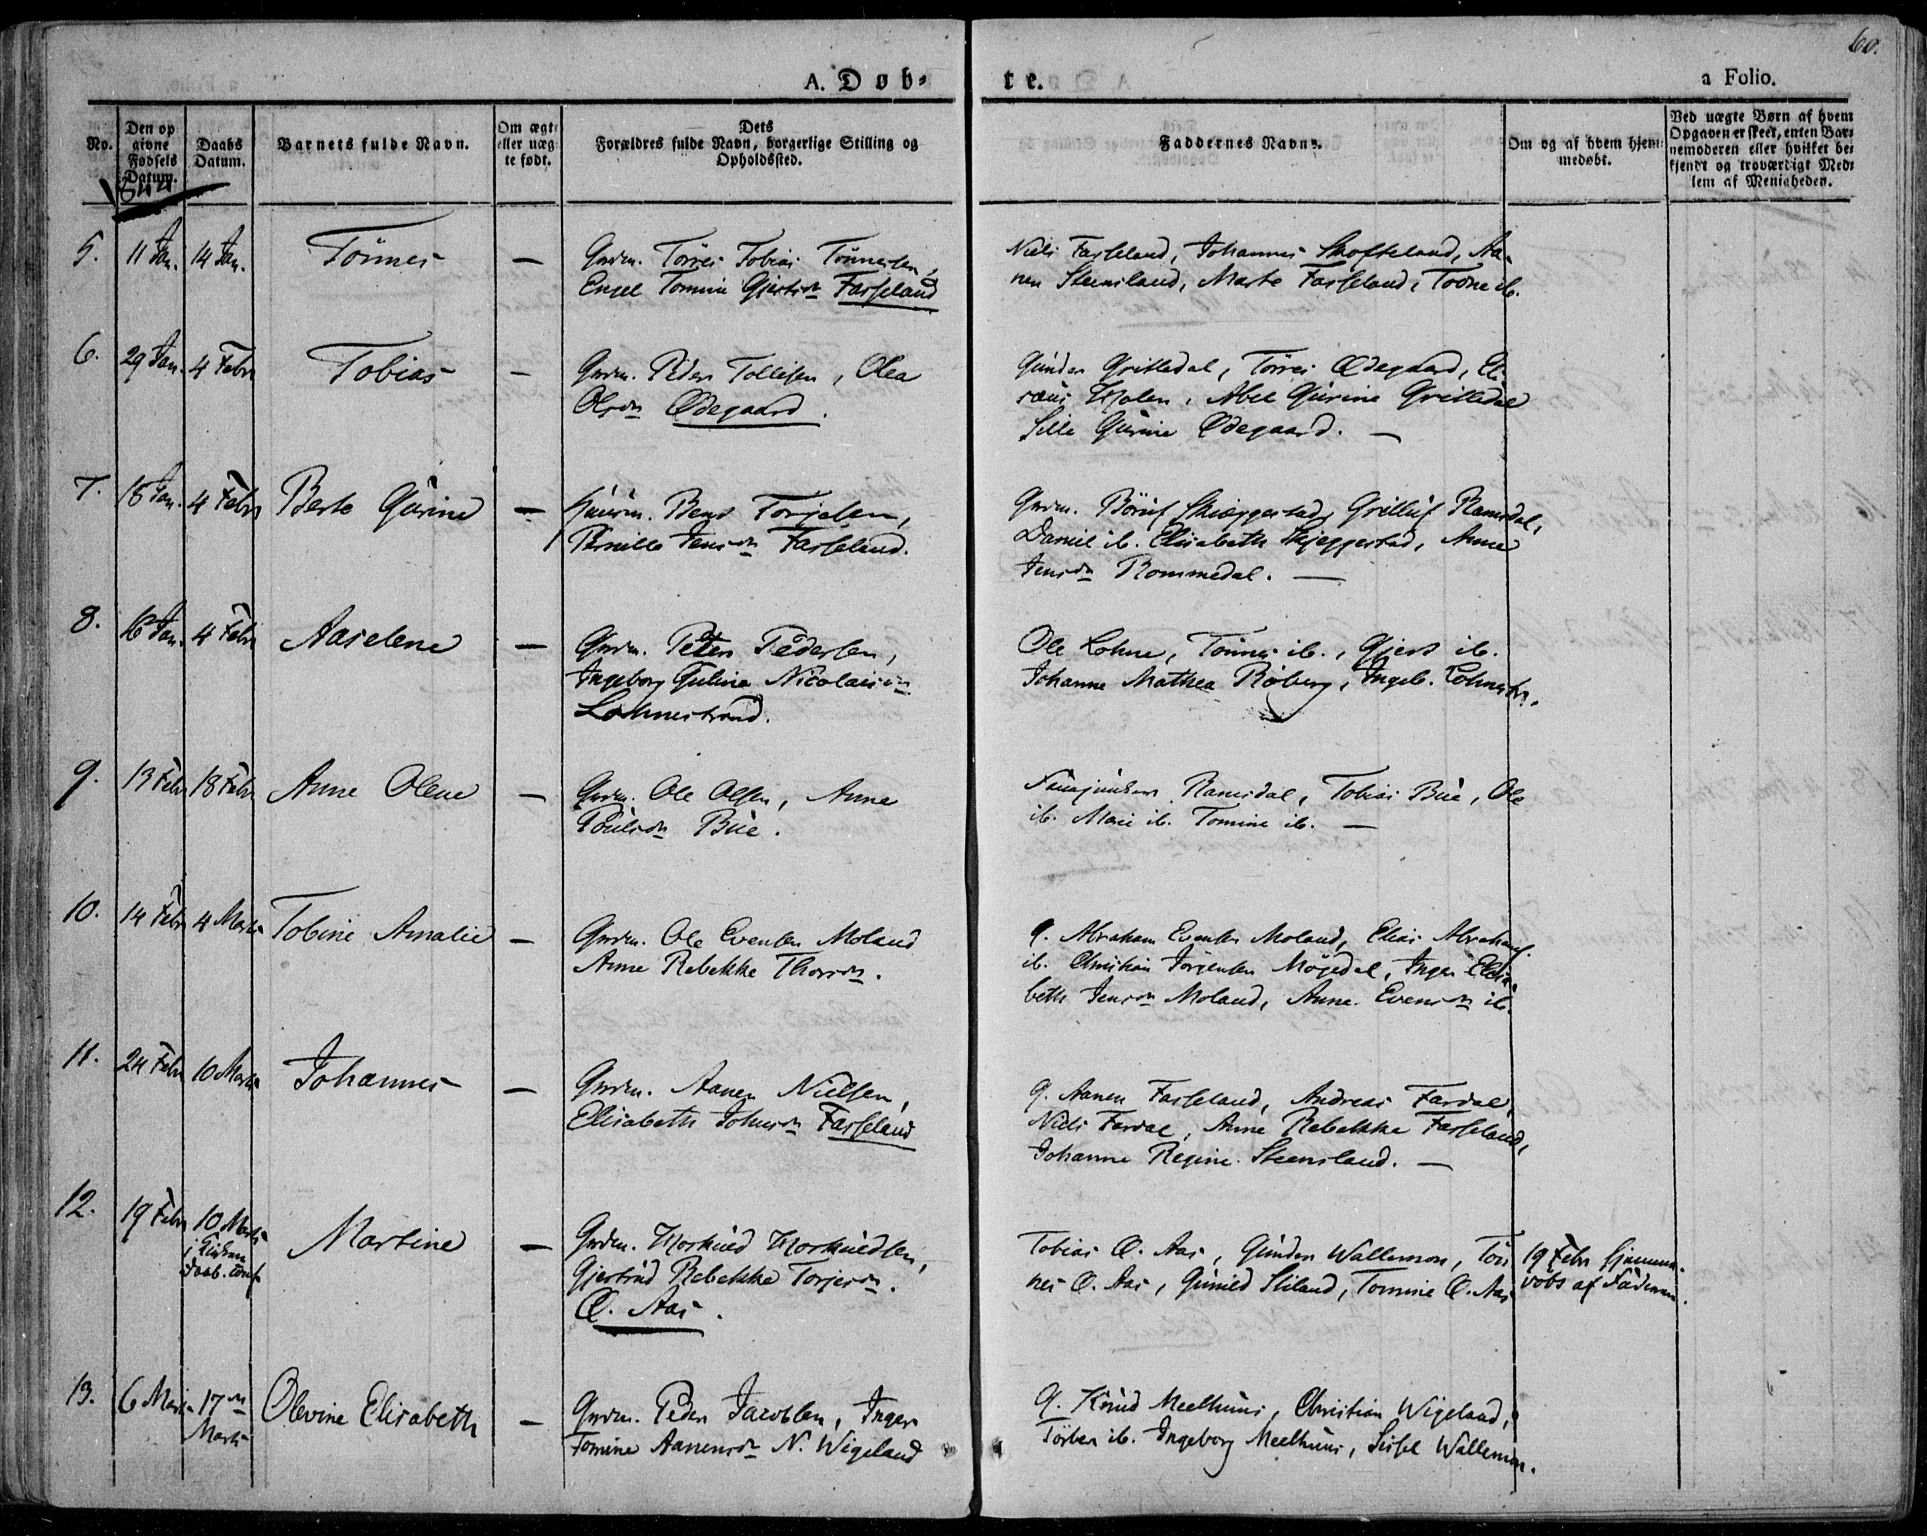 60.
A. Døb-
te.
a Folio.
No.
Den op
givne
Fødsels
Datum.
Daabs
Datum.
Barnets fulde Navn.
Om ægte
eller uæg-
te født.
Dets
Forældres fulde Navn, borgerlige Stilling og
Opholdssted.
Faddernes Navne.
Om og af hvem hjem-
medøbt.
Ved uægte Børn af hvem
Opgaven er skeet, enten Bar-
nemoderen eller hvilket be-
kjendt og troværdigt Med-
lem af Menigheden.
5. 11 Jan. 14 Jan. Tönnes —
Grdm. Törres Tobias Tönnesen,
Engel Tomine Gjertsdn Farseland
Niels Farseland, Johannes Skofteland, Aa-
nen Steensland, Marte Farseland, Todne ib.
6. 29 Jan. 4 Febr Tobias —
Grdm. Peder Tollisen, Olea
Olsdn Ødegaard.
Gunder Grisledal, Törres Ødegaard, Eli-
ræus Holen, Abel Gurine Grisledal
Sille Gurine Ødegaard. —
7. 4 Febr Berte Gurine —
Huusm. Bent Torjesen,
Pernille Jensdn Farseland.
Grdm. Skjæggestad, Ramsdal,
Daniel ib. Elisabeth Skjeggestad, Anne
Jensdn Rommedal. —
8. 16 Jan. 4 Febr Aaselene —
Grdm. Peter Pedersen,
Ingeborg Guline Nicolaisdn
Lohnestrand.
Ole Lohne, Tönnes ib., Gjert ib.
Johanne Mathea Röberg, Ingeb. Lohnestr.
9. 13 Febr 18 Febr Anne Olene —
Grdm. Ole Olsen, Anne
Poulsdn Bue.
Ramsdal, Tobias Bue, Ole
ib. Marie ib. Tomine ib. —
10. 14 Febr 4 Marts Tobine Amalie —
Grdm. Ole Evensen Moland
Anne Rebekke Thorsdn.
G. Abraham Evensen Moland, Elias Abrahams.
ib. Christian Jörgensen Mögedal, Inger Elisa-
beth Jensdn Moland, Anne Evensdn ib.
11. 24 Febr 10 Marts Johannes —
Grdm. Aanen Nielsen,
Elisabeth Johnsdn Farseland
G. Aanen Farseland, Andreas Fardal,
Niels Fardal, Anne Rebekke Farseland,
Johanne Regine Steensland. —
12. 19 Febr 10 Marts
i Kirken
Daab. conf. Martine —
Grdm. Horskued Horskuedsen,
Gjertrud Rebekke Torjesdn.
Ø. Aas.
Tobias Ø. Aas, Gunder Wallemon, Tön-
nes Ø. Aas, Gunild Stiland, Tomine Ø. Aas
19 Febr hjemme-
döbt af Faderen.
13. 6 Marts 17de
Marts Olevine Elisabeth —
Grdm. Peder Jacobsen, Inger
Tomine Aanensdn N. Wigeland
G. Knud Meelhuus, Christian Wigeland,
Törber ib. Ingeborg Meelhuus, Sissel Wallemon.